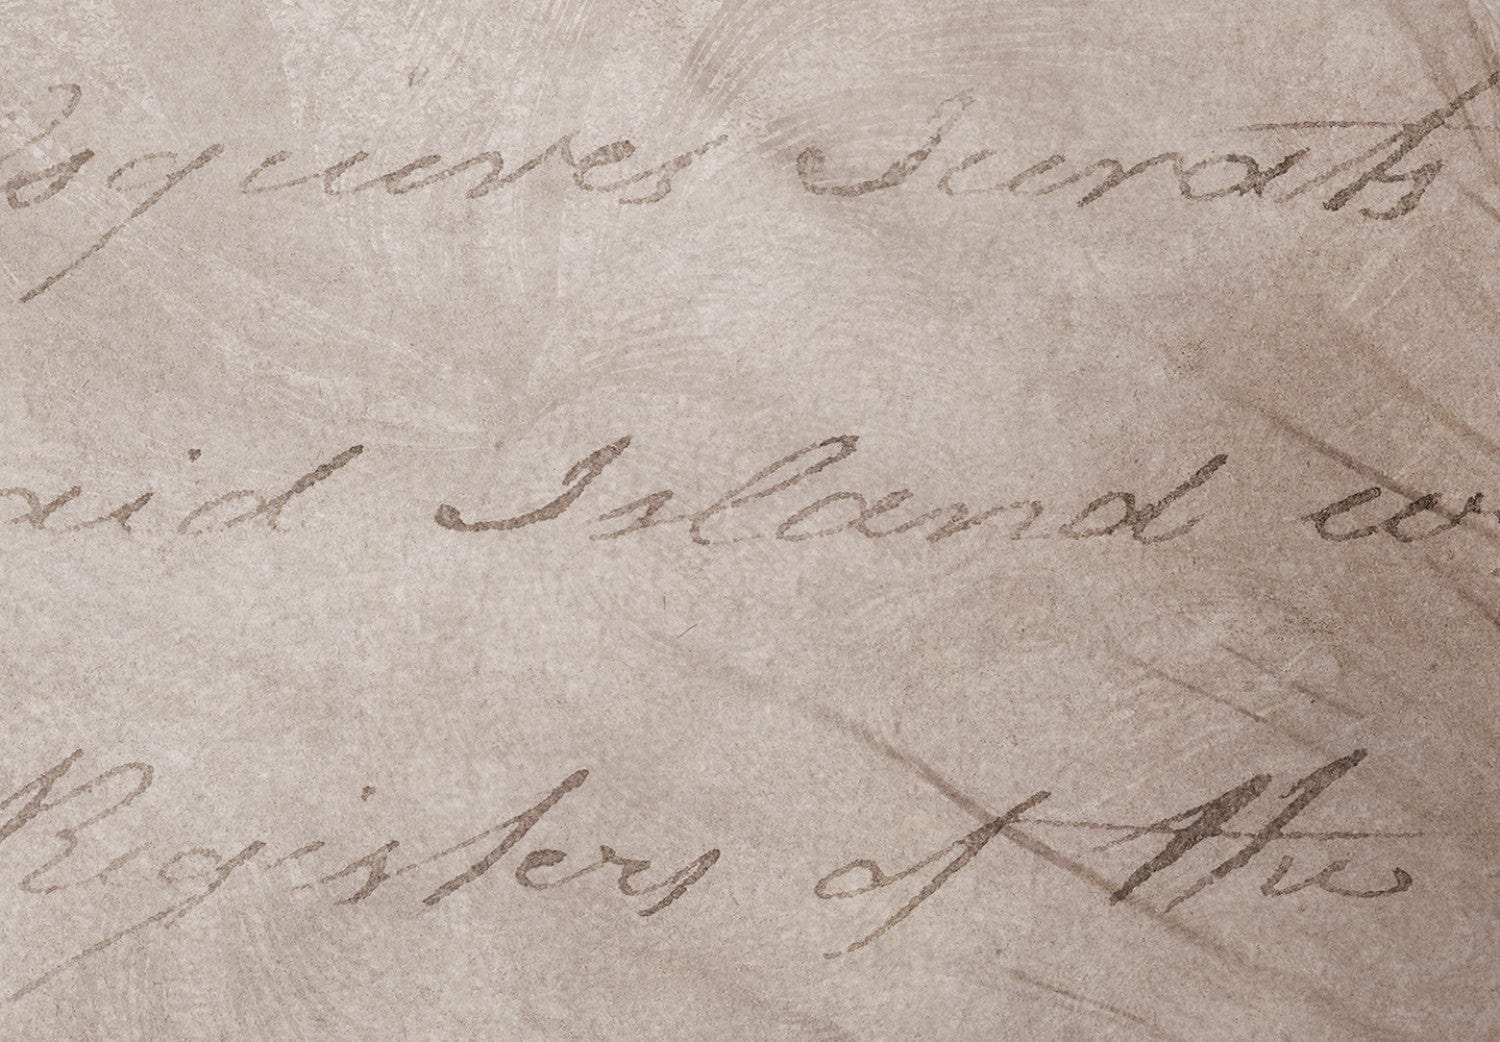 Esquires Jurats
aid Island
Registers of the